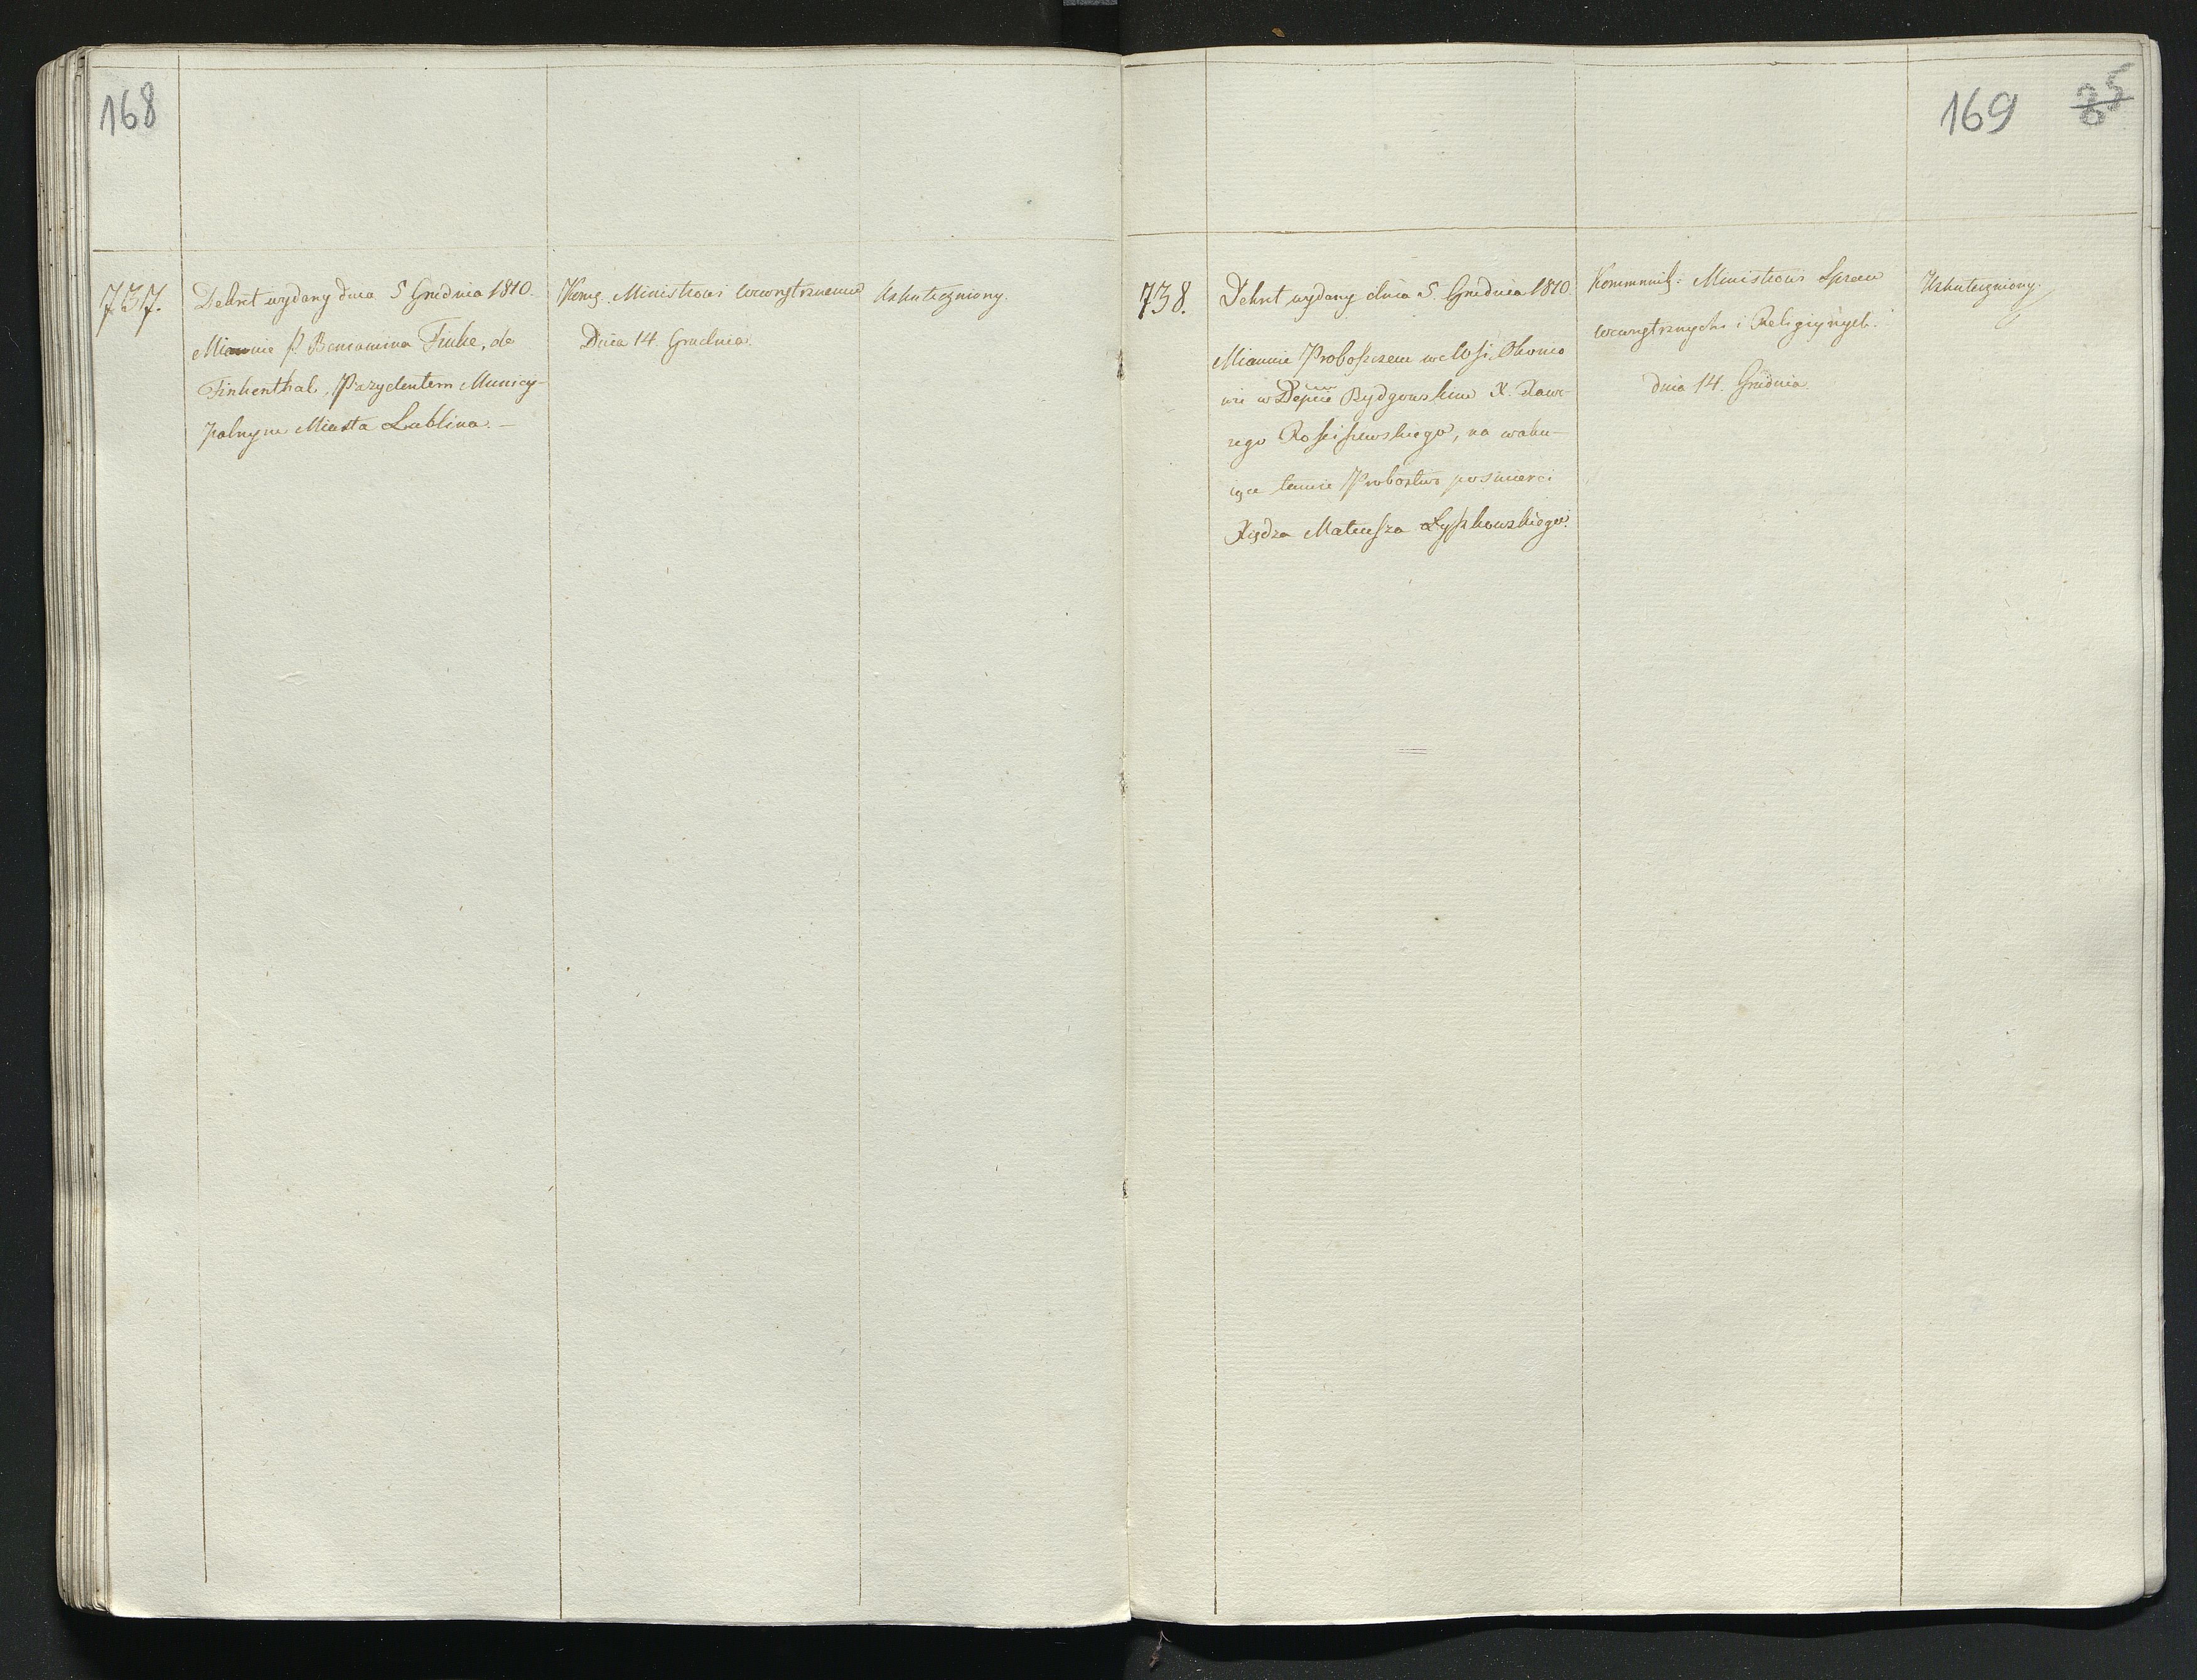 168
737.
Dekret wydany dnia 5 Grudnia 1810.
Mianuie P. Beniamina Finke, de
Finkenthal, Prezydentem Municy-
palnym Miasta Lublina. —
Kom͞g. Ministrowi Wewnętrznemu
Dnia 14. Grudnia.
Uskuteczniony.
169
738.
Dekret wydany dnia 5. Grudnia 1810.
Mianuie Proboszczem we Wsi Okonio
wie w Depcie Bydgowskim X. Xawe-
rego Rościszewskiego, na waku-
iące tamże Probostwo po śmierci
Xiędza Mateusza Łyszkowskiego.
Kommunik: Ministrowi Spraw
Wewnętrznych i Religiynych.
dnia 14. Grudnia
Uskuteczniony.